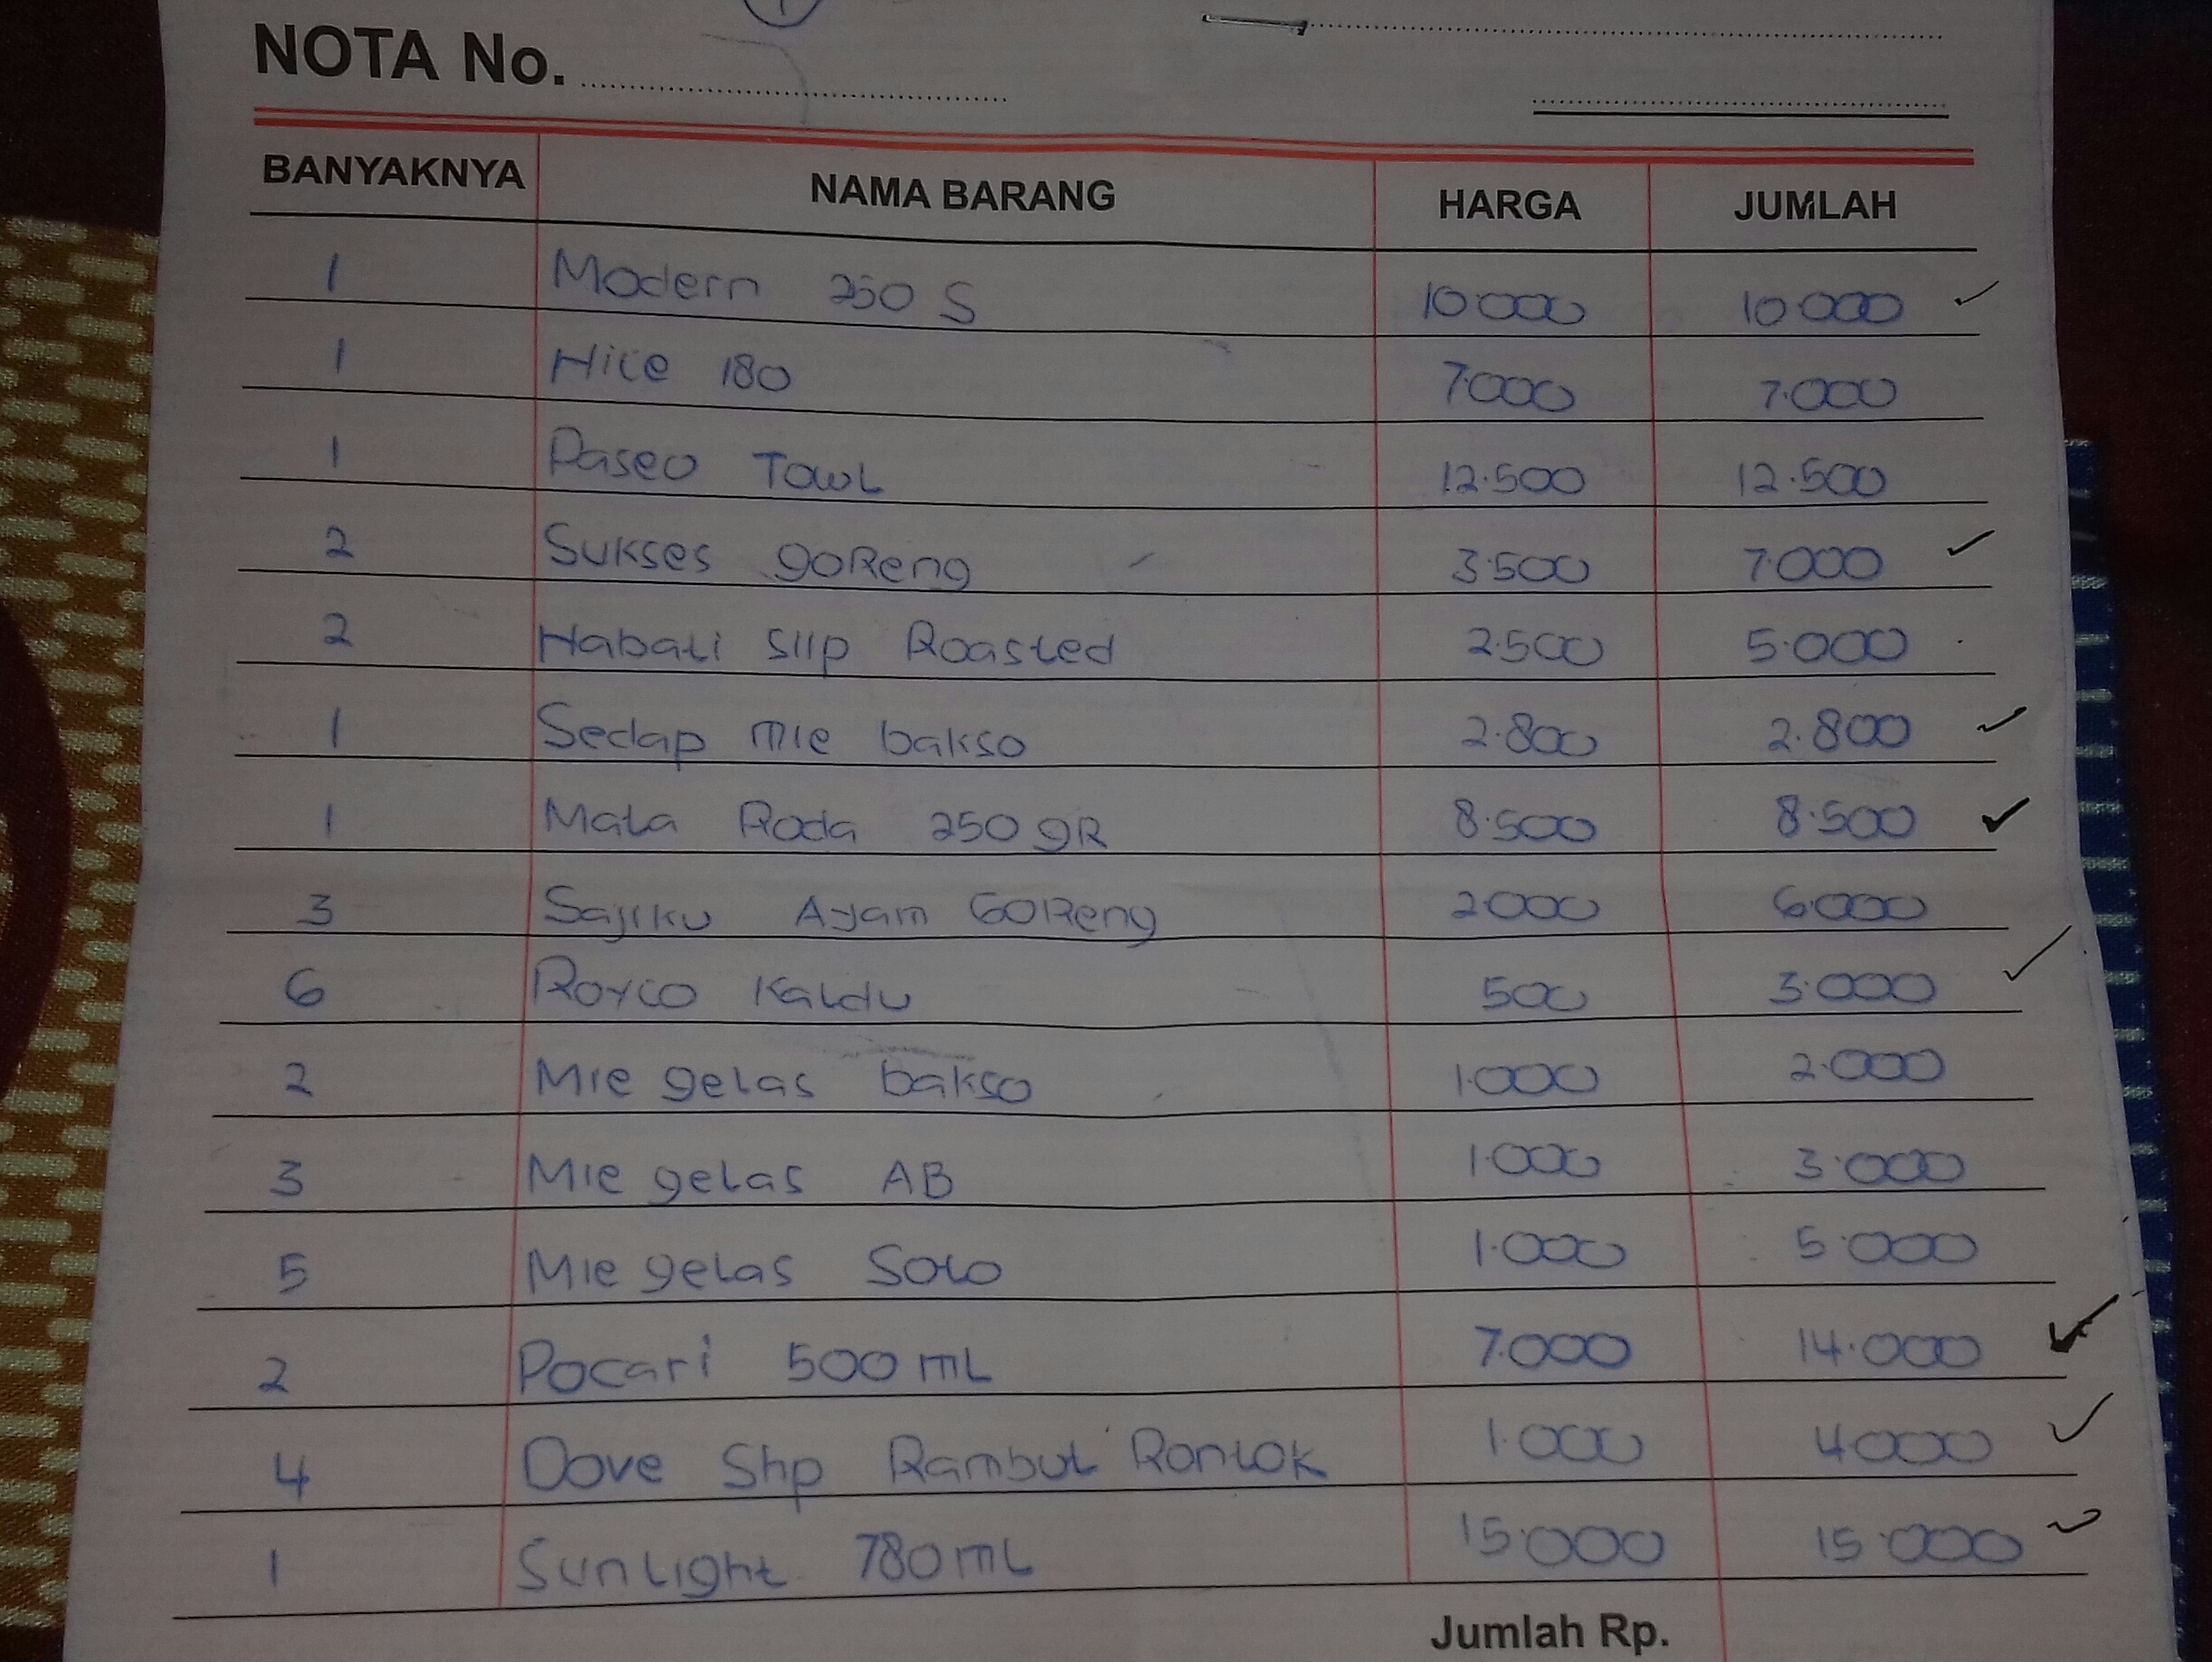 NOTA No.
BANYAKNYA NAMA BARANG HARGA JUMLAH
1 Modern 250 S 10.000 10.000
1 Nice 180 7.000 7.000
1 Paseo Towl 12.500 12.500
2 Sukses goReng 3.500 7.000
2 Nabati SIIp Roasted 2.500 5.000
1 Sedap mie bakso 2.800 2.800
1 Mata Roda 250 gR 8.500 8.500
3 Sajiku Ayam GoReng 2000 6.000
6 Royco Kaldu 500 3.000
2 Mie gelas bakso 1.000 2.000
3 Mie gelas AB 1.000 3.000
5 Mie gelas Solo 1.000 5.000
2 Pocari 500 mL 7.000 14.000
4 Dove Shp Rambut Rontok 1.000 4000
1 Sunlight 780 mL 15.000 15.000
Jumlah Rp.